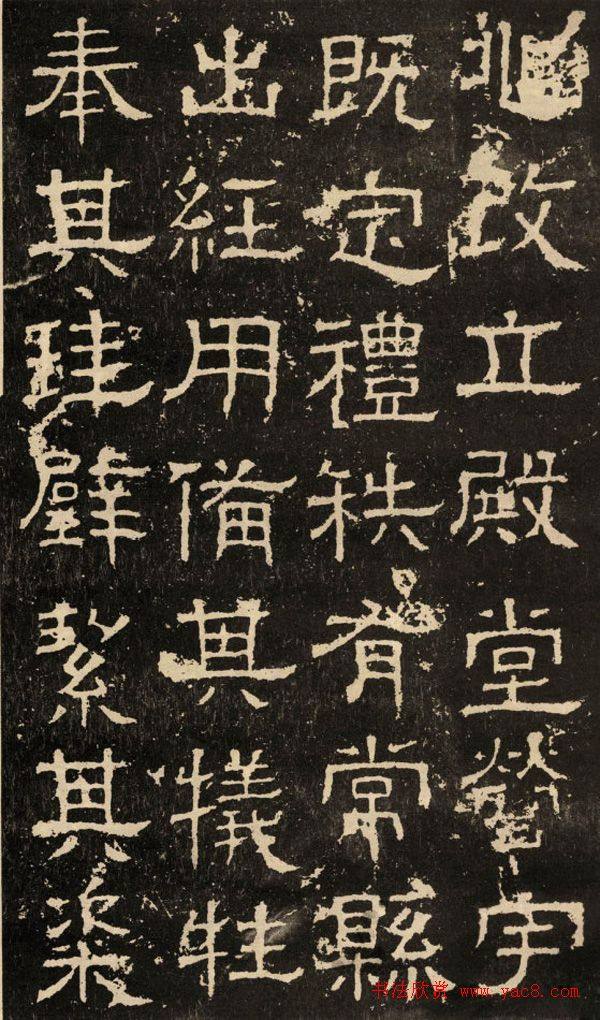 兆改立殿堂營宇
既定禮秩有常縣
出經用備其犧牲
奉其珪璧絜其粢
书法欣赏 www.yac8.com